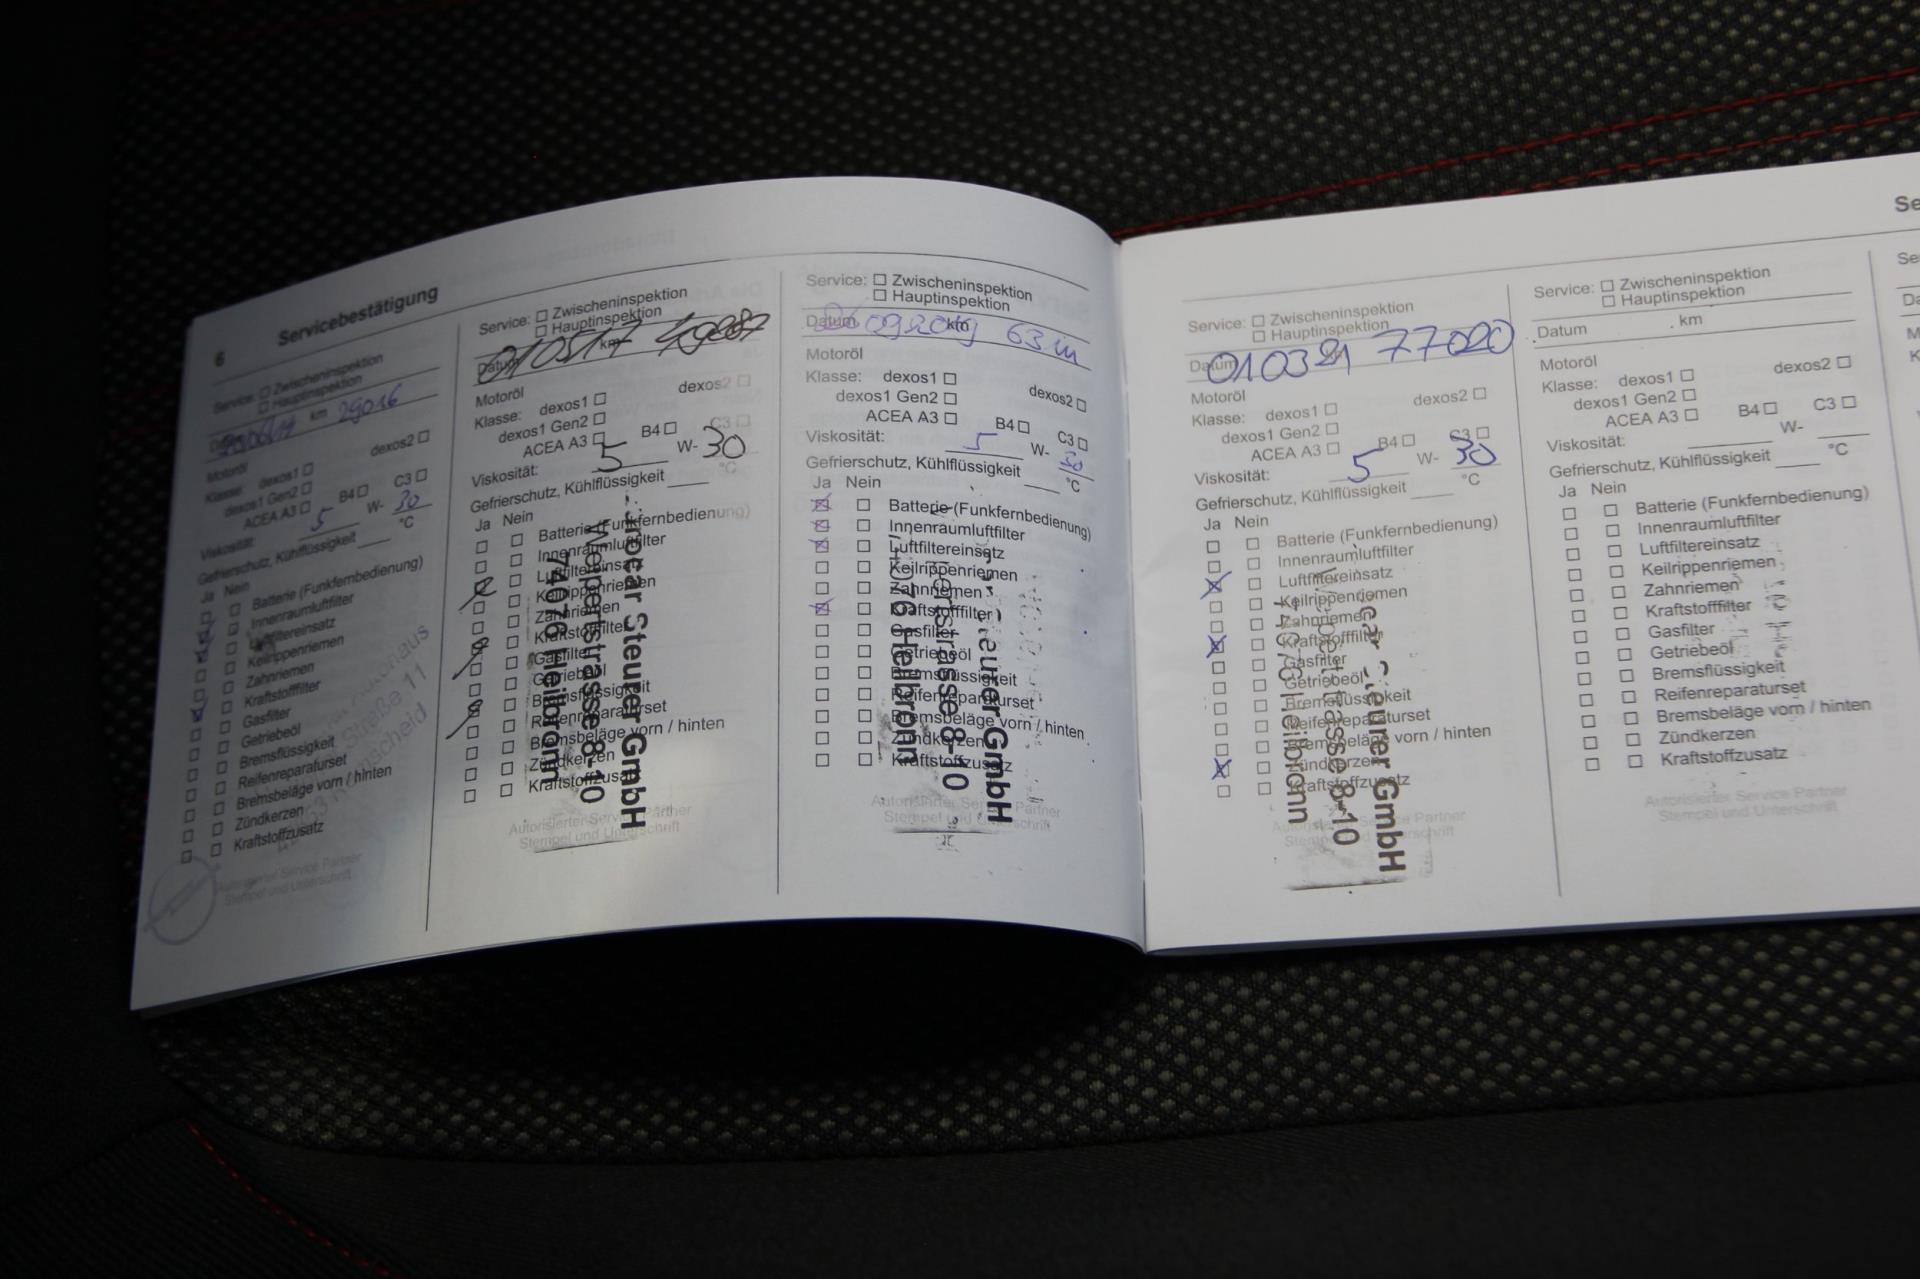 6 Servicebestätigung
Service: ☐ Zwischeninspektion
☐ Hauptinspektion
km 29016
Motoröl
Klasse: dexos1 ☐ dexos2 ☐
dexos1 Gen2 ☐
ACEA A3 ☐ B4 ☐ C3 ☐
Viskosität: 5 W- 30
Gefrierschutz, Kühlflüssigkeit ____ °C
Ja Nein
Batterie (Funkfernbedienung)
Innenraumluftfilter
Luftfiltereinsatz
Keilrippenriemen
Zahnriemen
Kraftstofffilter
Gasfilter
Getriebeöl
Bremsflüssigkeit
Reifenreparaturset
Bremsbeläge vorn / hinten
Zündkerzen
Kraftstoffzusatz
Straße 11
Autorisierter Service Partner
Stempel und Unterschrift
Service: ☐ Zwischeninspektion
☐ Hauptinspektion
Datum 010517 km
Motoröl
Klasse: dexos1 ☐ dexos2 ☐
dexos1 Gen2 ☐
ACEA A3 ☐ B4 ☐ C3 ☐
Viskosität: 5 W- 30
Gefrierschutz, Kühlflüssigkeit ____ °C
Ja Nein
Batterie (Funkfernbedienung)
Innenraumluftfilter
Luftfiltereinsatz
Keilrippenriemen
Zahnriemen
Kraftstofffilter
Gasfilter
Getriebeöl
Bremsflüssigkeit
Reifenreparaturset
Bremsbeläge vorn / hinten
Zündkerzen
Kraftstoffzusatz
Steurer GmbH
Weipertstrasse 8-10
74076 Heilbronn
Autorisierter Service Partner
Stempel und Unterschrift
Service: ☐ Zwischeninspektion
☐ Hauptinspektion
Datum km
Motoröl
Klasse: dexos1 ☐ dexos2 ☐
dexos1 Gen2 ☐
ACEA A3 ☐ B4 ☐ C3 ☐
Viskosität: 5 W- 30
Gefrierschutz, Kühlflüssigkeit ____ °C
Ja Nein
Batterie (Funkfernbedienung)
Innenraumluftfilter
Luftfiltereinsatz
Keilrippenriemen
Zahnriemen
Kraftstofffilter
Gasfilter
Getriebeöl
Bremsflüssigkeit
Reifenreparaturset
Bremsbeläge vorn / hinten
Zündkerzen
Kraftstoffzusatz
GmbH
8-10
Heilbronn
Autorisierter Service Partner
Stempel und Unterschrift
Service: ☐ Zwischeninspektion
☐ Hauptinspektion
Datum 010321 km 77020
Motoröl
Klasse: dexos1 ☐ dexos2 ☐
dexos1 Gen2 ☐
ACEA A3 ☐ B4 ☐ C3 ☐
Viskosität: 5 W- 30
Gefrierschutz, Kühlflüssigkeit ____ °C
Ja Nein
Batterie (Funkfernbedienung)
Innenraumluftfilter
Luftfiltereinsatz
Keilrippenriemen
Zahnriemen
Kraftstofffilter
Gasfilter
Getriebeöl
Bremsflüssigkeit
Reifenreparaturset
Bremsbeläge vorn / hinten
Zündkerzen
Kraftstoffzusatz
GmbH
8-10
Heilbronn
Autorisierter Service Partner
Stempel und Unterschrift
Service: ☐ Zwischeninspektion
☐ Hauptinspektion
Datum km
Motoröl
Klasse: dexos1 ☐ dexos2 ☐
dexos1 Gen2 ☐
ACEA A3 ☐ B4 ☐ C3 ☐
Viskosität: ____ W- ____
Gefrierschutz, Kühlflüssigkeit ____ °C
Ja Nein
☐ ☐ Batterie (Funkfernbedienung)
☐ ☐ Innenraumluftfilter
☐ ☐ Luftfiltereinsatz
☐ ☐ Keilrippenriemen
☐ ☐ Zahnriemen
☐ ☐ Kraftstofffilter
☐ ☐ Gasfilter
☐ ☐ Getriebeöl
☐ ☐ Bremsflüssigkeit
☐ ☐ Reifenreparaturset
☐ ☐ Bremsbeläge vorn / hinten
☐ ☐ Zündkerzen
☐ ☐ Kraftstoffzusatz
Autorisierter Service Partner
Stempel und Unterschrift